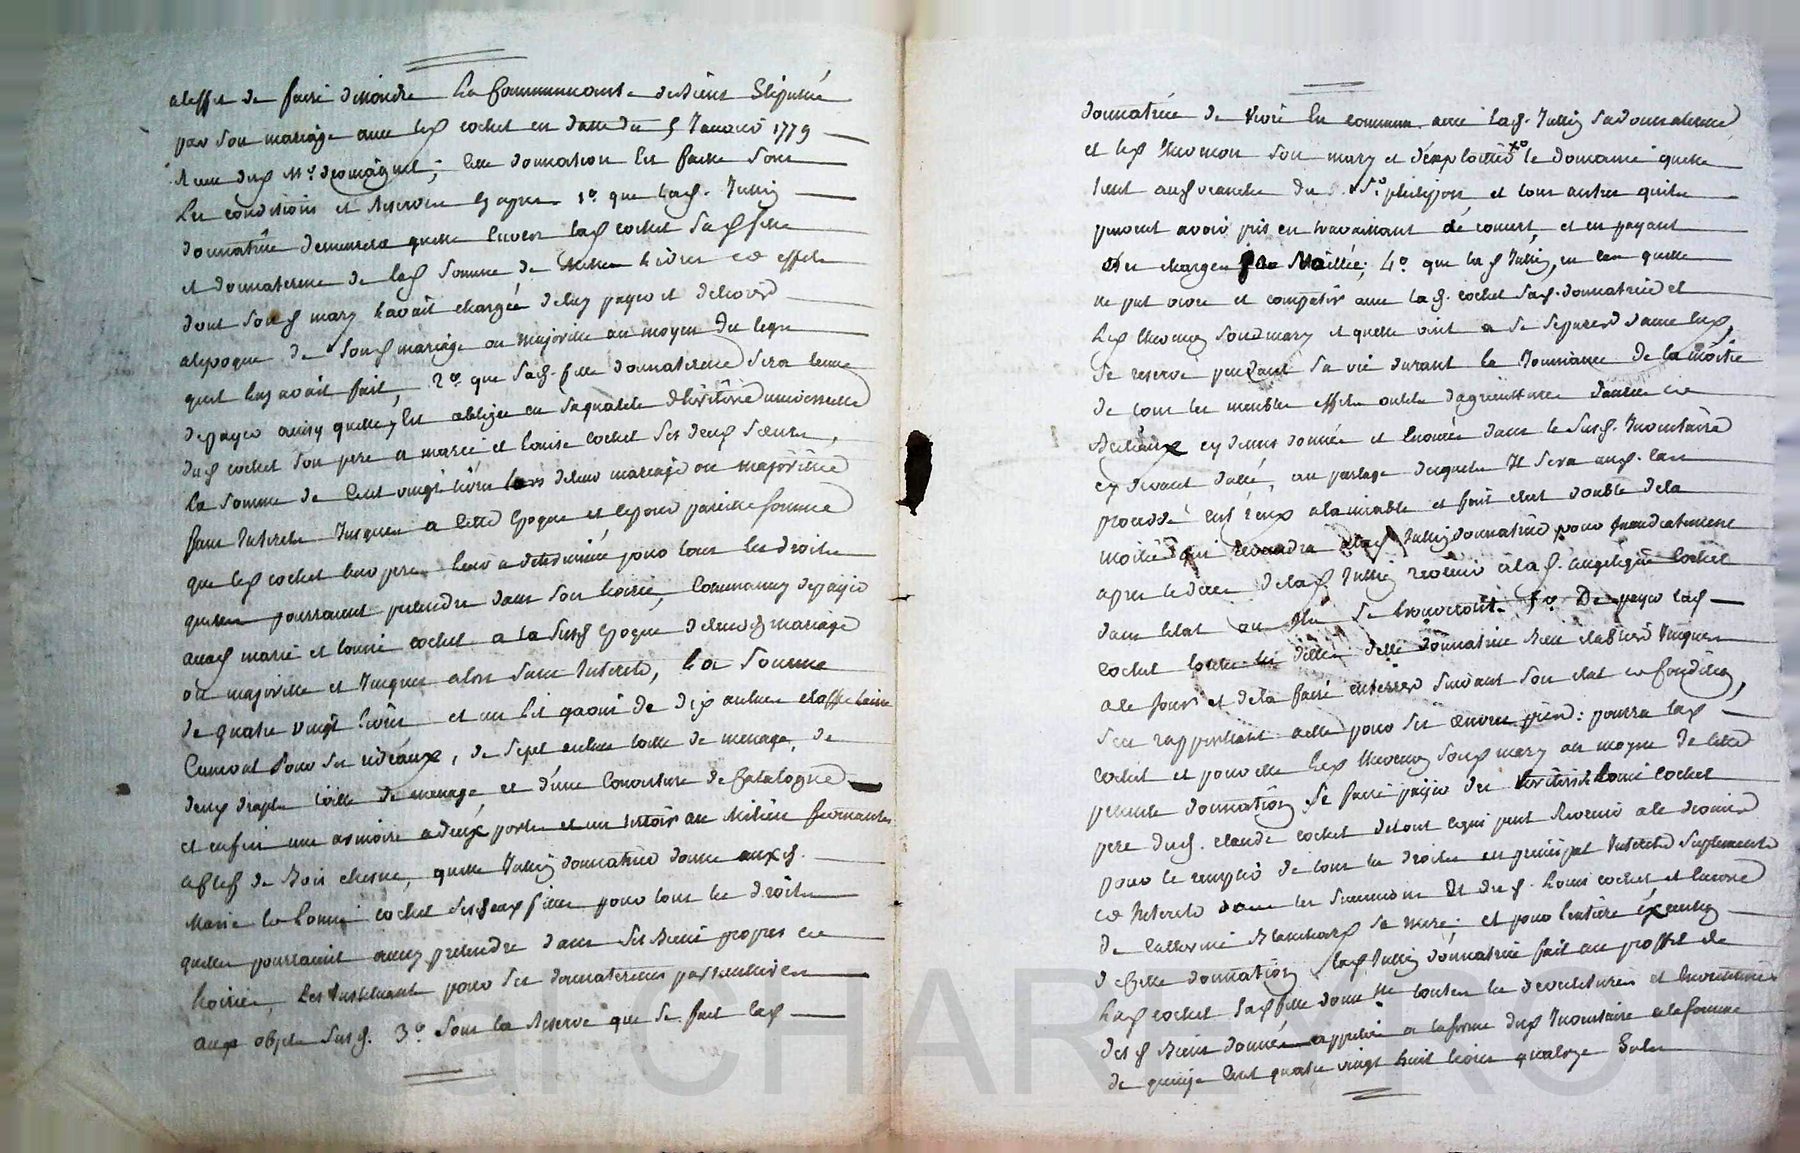 a leffet de faire dissoudre la Communauté de Biens Stipulée
par son mariage avec led cochet en datte du 5 Janvier 1779
Reçu dud Mr. dromaignet; cette donnation est faitte sous
les conditions et Reserves cy apres 1° que lad. Jullin
donnatrice demeurera quitte envers lad cochet sad fille
et donnaterese de lad somme de Mille livres et effets
dont soud mary l'avait chargée de luy payer et delivrer
a lepoque de soud mariage ou majorité au moyen du legs
quil luy avait fait, 2° que sad. fille donnaterese sera tenue
de payer ainsy quelle y est obligée en sa qualité dheritiere universelle
dud cochet son pere a marie et louise cochet ses deux sœurs,
la somme de Cent vingt livres lors de leur mariage ou majorité
sans Interets Jusques a cette Epoque et ce pour pareille somme
que led cochet leur pere leur a determinée pour tous les droits
quelles pourraient pretendre dans son hoirie, Comm de payer
auxd marie et louise cochet a la susd Epoque de leurd mariage
ou majorité et Jusques alors sans Interets, la somme
de quatre vingt livres et un lit garni de dix aulnes etoffe laine
Cumont pour ses rideaux, de sept aulnes toille de menage, de
deux draps toille de menage et d'une Couverture de Catalogne
et enfin une armoire a deux portes et un tiroir au Milieu fermantes
a clef de Bois chesne, quelle Jullin donnatrice donne auxd.
Marie et Louise cochet ses deux filles pour tous les droits
quelles pourraient aussy pretendre dans ses Biens propres et
hoirie, les Instituant pour ses donnatereses particulieres
aux objets susd. 3° sous la Reserve que se fait lad
donnatrice de vivre en commun avec lad. Jullin sa donnaterese
et led Thevenon son mary et d'exploitter le domaine quelle
tient auxd granche du Sr. philippon et tous autres quils
peuvent avoir pris en travaillant de concert, et en payant
les charges par Moitié; 4° que lad Jullin, en cas quelle
ne put vivre et compatir avec lad. cochet sad. donnatrice et
led Thevenon soud mary et quelle vint a se separer davec eux,
se reserve pendant sa vie durant la Jouissance de la moitié
de tous les meubles effets outils dagriculture danrées et
Bestiaux cy dessus donnés et enoncés dans le susd. Inventaire
cy devant datté, au partage desquels Il sera aud. cas
procedé entreux a lamiable et fait etat double de la
moitié qui reviendra a lad Jullin donnatrice pour
apres le deces de lad Jullin revenir a lad. angelique cochet
dans letat ou elle se trouveront. 5° De payer lad
cochet toutes les dettes de lad donnatrice Bien etablies Jusques
a ce jour et de la faire enterrer suivant son etat et condition,
sen rapportant a elle pour ses œuvres pies: pourra lad
cochet et pour elle led Thevenon soud mary au moyen de cette
presente donnation se faire payer des heritiers de Louis cochet
pere dud. claude cochet de tout ce qui peut Revenir a ce dernier
pour le remplir de tous les droits en principal Interets Supplements
et Interets dans les successions et dud. Louis cochet et encore
de Catherine Blanchard sa mere: et pour lentiere execution
de cette donnation, lad Jullin donnatrice fait au proffit de
lad cochet sad fille donne toutes les devestitures et Investitures
desd Biens donnés appretiés a la forme dud Inventaire a la somme
de quinze Cent quatre vingt huit livres quatorze Sols